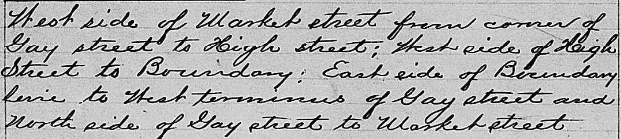 West side of Market street from corner of
Gay street to High street; West side of High
Street to Boundary; East side of Boundary
line to West terminus of Gay street and
North side of Gay street to Market street